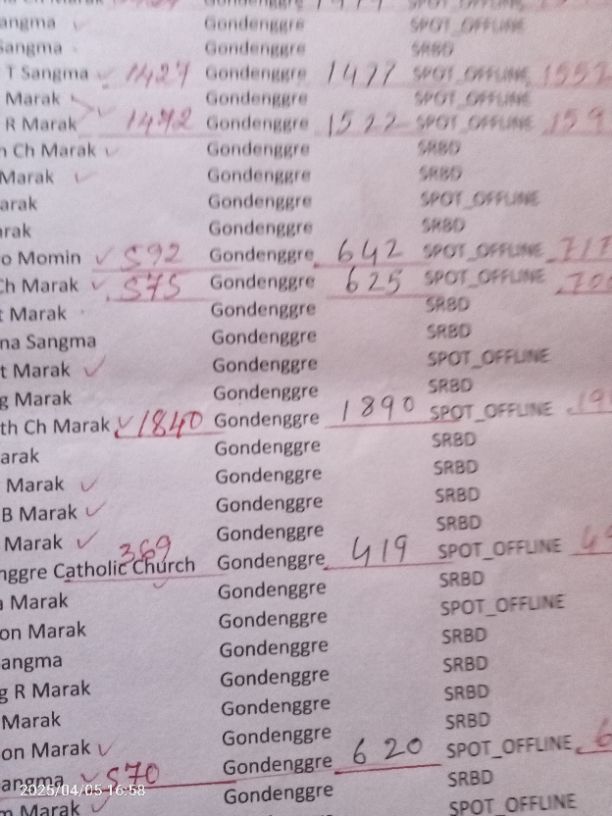 Marak Gondenggre SPOT_OFFLINE
angma Gondenggre SPOT_OFFLINE
Sangma Gondenggre SRBD
T Sangma 1427 Gondenggre 1477 SPOT_OFFLINE 1552
Marak Gondenggre SPOT_OFFLINE
R Marak 1472 Gondenggre 1522 SPOT_OFFLINE 159
n Ch Marak Gondenggre SRBD
Marak Gondenggre SRBD
arak Gondenggre SPOT_OFFLINE
arak Gondenggre SRBD
o Momin 592 Gondenggre 642 SPOT_OFFLINE 717
Ch Marak 575 Gondenggre 625 SPOT_OFFLINE 700
t Marak Gondenggre SRBD
na Sangma Gondenggre SRBD
t Marak Gondenggre SPOT_OFFLINE
g Marak Gondenggre SRBD
th Ch Marak 1840 Gondenggre 1890 SPOT_OFFLINE 19
arak Gondenggre SRBD
Marak Gondenggre SRBD
B Marak Gondenggre SRBD
Marak Gondenggre SRBD
nggre Catholic Church 369 Gondenggre 419 SPOT_OFFLINE 49
a Marak Gondenggre SRBD
on Marak Gondenggre SPOT_OFFLINE
angma Gondenggre SRBD
g R Marak Gondenggre SRBD
Marak Gondenggre SRBD
on Marak Gondenggre SRBD
angma 570 Gondenggre 620 SPOT_OFFLINE 6
m Marak Gondenggre SRBD
SPOT_OFFLINE
2025/04/05 16:58